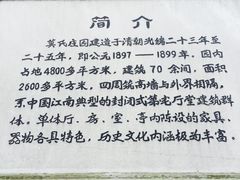 简 介
莫氏庄园建造于清朝光绪二十三年至
二十五年，即公元1897——1899年。园内
占地4800多平方米，建筑70余间，面积
2600多平方米，四周筑高墙与外界相隔，
系中国江南典型的封闭式第宅厅堂建筑群
体，单体厅、房、室、亭内陈设的家具、
器物各具特色，历史文化内涵极为丰富。